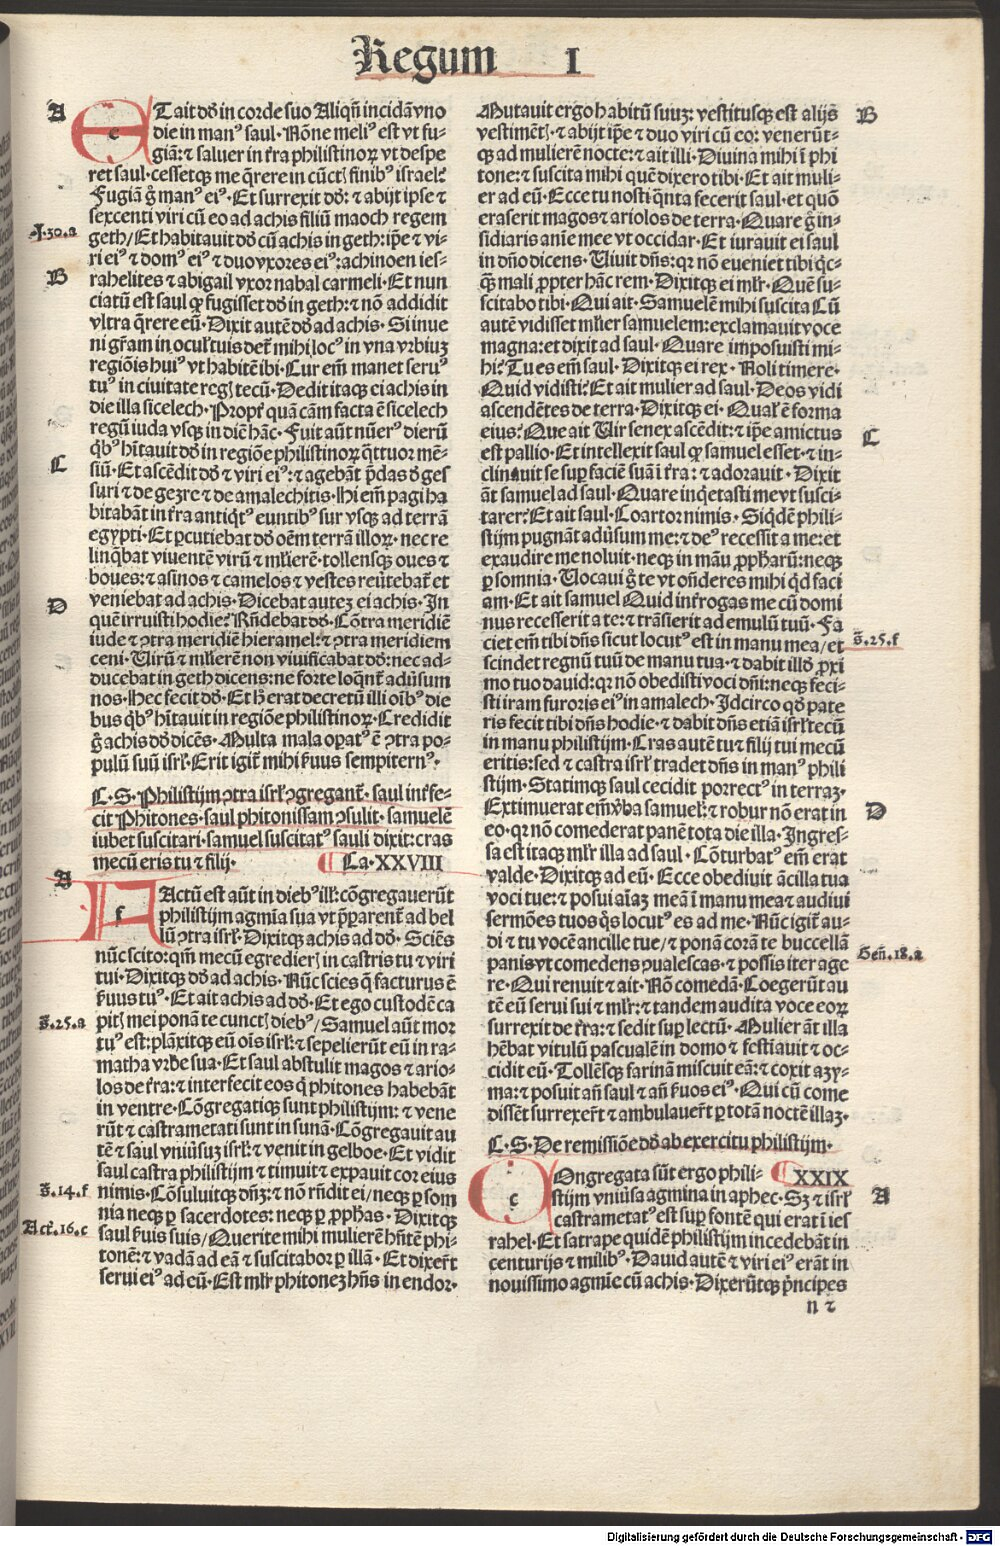 Regum I
A
ETait dd̄ in corde suo Aliqñ incidā vno
die in manꝰ saul·Nōne meliꝰ est vt fu⸗
giā:⁊ saluer in t̄ra philistinoꝝ vt despe
ret saul·cessetqꝫ me q̄rere in cūct̄ finibꝰ israel:
Fugiā g̊ manꝰ eiꝰ·Et surrexit dd̄:⁊ abijt ipse ⁊
sexcenti viri cū eo ad achis filiū maoch regem
J.30.a
geth/Et habitauit dd̄ cū achis in geth:ip̄e ⁊ vi⸗
ri eiꝰ ⁊ domꝰ eiꝰ ⁊ duo vxores eiꝰ:achinoen ies⸗
B
rahelites ⁊ abigail vxor nabal carmeli·Et nun
ciatū est saul ꝙ fugisset dd̄ in geth:⁊ nō addidit
vltra q̄rere eū·Dixit autē dd̄ ad achis·Si inue
ni gr̄am in ocul̓ tuis det̄ mihi locꝰ in vna vrbiuꝫ
regiōis huiꝰ vt habitē ibi·Cur em̄ manet seruꝰ
tuꝰ in ciuitate reḡ tecū·Dedit itaqꝫ ei achis in
die illa sicelech·Propt̄ quā cām facta ē sicelech
regū iuda vsqꝫ in diē hāc·Fuit aūt nūerꝰ dierū
q̄bꝰ hītauit dd̄ in regiōe philistinoꝝ q̄ttuor mē⸗
C
siū·Et ascēdit dd̄ ⁊ viri eiꝰ:⁊ agebāt p̄das d̄ ges
suri ⁊ de gezre ⁊ de amalechitis·Hi em̄ pagi ha
bitabāt in t̄ra antiq̄tꝰ euntibꝰ sur vsqꝫ ad terrā
egypti·Et ꝑcutiebat dd̄ oēm terrā illoꝝ·nec re
linq̄bat viuentē virū ⁊ ml̄ierē·tollensqꝫ oues ⁊
boues:⁊ asinos ⁊ camelos ⁊ vestes reūtebat̄ et
D
veniebat ad achis·Dicebat auteꝫ ei achis·In
quē irruisti hodie:Rn̄debat dd̄·Cōtra meridiē
iude ⁊ ꝯtra meridiē hieramel:⁊ ꝯtra meridiem
ceni·Uirū ⁊ ml̄ierē non viuificabat dd̄:nec ad⸗
ducebat in geth dicens:ne forte loq̄nt̄ aduersum
nos·Hec fecit dd̄·Et h̄ erat decretū illi oībꝰ die
bus q̄bꝰ hītauit in regiōe philistinoꝝ·Credidit
g̊ achis dd̄ dicēs·Multa mala opatꝰ ē ꝯtra po⸗
pulū suū isrl̄·Erit igit̄ mihi s̄uus sempiternꝰ·
C·S·Philistijm ꝯtra isrl̄ ꝯgregant̄·saul int̄fe⸗
cit Phitones·saul phitonissam ꝯsulit·samuelē
iubet suscitari·samuel suscitatꝰ sauli dixit:cras
mecū eris tu ⁊ filij· Ca·XXVIII
A
FActū est aūt in diebꝰ ill̓:cōgregauerūt
philistijm agmīa sua vt p̄parent̄ ad bel
lū ꝯtra isrl̄·Dixitqꝫ achis ad dd̄·Sciēs
nūc scito:qm̄ mecū egredier̄ in castris tu ⁊ viri
tui·Dixitqꝫ dd̄ ad achis·Nūc scies q̄ facturus ē
s̄uus tuꝰ·Et ait achis ad dd̄·Et ego custodē ca
s̄.25.a
pit̄ mei ponā te cunct̄ diebꝰ/Samuel aūt mor
tuꝰ est:plāxitqꝫ eū ois isrl̄:⁊ sepelierūt eū in ra⸗
matha vrbe sua·Et saul abstulit magos ⁊ ario⸗
los de t̄ra:⁊ interfecit eos q̄ phitones habebāt
in ventre·Cōgregatiqꝫ sunt philistijm:⁊ vene
rūt ⁊ castrametati sunt in sunā·Cōgregauit au
tē ⁊ saul vniūsuꝫ isrl̄:⁊ venit in gelboe·Et vidit
saul castra philistijm ⁊ timuit ⁊ expauit cor eius
s̄.14.f
nimis·Cōsuluitqꝫ dn̄ꝫ:⁊ nō rn̄dit ei/neqꝫ ꝑ som
nia neqꝫ ꝑ sacerdotes:neqꝫ ꝑ ꝓphas·Dixitqꝫ
Act̄.16.c
saul s̄uis suis/Querite mihi mulierē hn̄tē phi⸗
tonē:⁊ vadā ad eā ⁊ suscitabor ꝑ illā·Et dixert̄
serui eiꝰ ad eū·Est ml̄r phitoneꝫ hn̄s in endor·
Mutauit ergo habitū suuꝫ:vestitusqꝫ est alijs
B
vestimēt̄·⁊ abijt ip̄e ⁊ duo viri cū eo:venerūt⸗
qꝫ ad mulierē nocte:⁊ ait illi·Diuina mihi ī phi
tone:⁊ suscita mihi quē dixero tibi·Et ait muli⸗
er ad eū·Ecce tu nosti q̄nta fecerit saul·et quō
eraserit magos ⁊ ariolos de terra·Quare g̊ in⸗
sidiaris anīe mee vt occidar·Et iurauit ei saul
in dn̄o dicens·Uiuit dn̄s:qꝛ nō eueniet tibi q̄c⸗
q̄ꝫ mali ꝓpter hāc rem·Dixitqꝫ ei ml̄r·Quē su⸗
scitabo tibi·Qui ait·Samuelē mihi suscita Cū
autē vidisset ml̄ier samuelem:exclamauit voce
magna:et dixit ad saul·Quare imposuisti mi⸗
hi:Tu es em̄ saul·Dixitqꝫ ei rex·Noli timere·
Quid vidisti:Et ait mulier ad saul·Deos vidi
ascendētes de terra·Dixitqꝫ ei·Qual̓ ē forma
C
eius:Que ait Uir senex ascēdit:⁊ ip̄e amictus
est pallio·Et intellexit saul ꝙ samuel esset·⁊ in⸗
clinauit se suꝑ faciē suā ī t̄ra:⁊ adorauit·Dixit
āt samuel ad saul·Quare inq̄etasti me vt susci⸗
tarer:Et ait saul·Coartor nimis·Siq̄dē phili⸗
stijm pugnāt aduersum me:⁊ deꝰ recessit a me:et
exaudire me noluit·neqꝫ in māu ꝓphaꝝ:neqꝫ
ꝑ somnia·Uocaui g̊ te vt on̄deres mihi qd̄ faci
am·Et ait samuel Quid int̄rogas me cū domi
nus recesserit a te:⁊ trāsierit ad emulū tuū·Fa
s̄.25.f
ciet em̄ tibi dn̄s sicut locutꝰ est in manu mea/et
scindet regnū tuū de manu tua·⁊ dabit illd̄ ꝓxi
mo tuo dauid:qꝛ nō obedisti voci dn̄i:neqꝫ feci⸗
sti iram furoris eiꝰ in amalech·Idcirco qd̄ pate
ris fecit tibi dn̄s hodie·⁊ dabit dn̄s etiā isrl̄ tecū
in manu philistijm·Cras autē tu ⁊ filij tui mecū
eritis:sed ⁊ castra isrl̄ tradet dn̄s in manꝰ phili
stijm·Statimqꝫ saul cecidit porrectꝰ in terraꝫ·
D
Extimuerat em̄ v̄ba samuel̓:⁊ robur nō erat in
eo·qꝛ nō comederat panē tota die illa·Ingres⸗
sa est itaqꝫ ml̄r illa ad saul·Cōturbatꝰ em̄ erat
valde·Dixitqꝫ ad eū·Ecce obediuit ācilla tua
voci tue:⁊ posui aīaꝫ meā ī manu mea ⁊ audiui
sermōes tuos q̄s locutꝰ es ad me·Nūc igit̄ au⸗
di ⁊ tu vocē ancille tue/⁊ ponā corā te buccellā
Gen̄.18.a
panis vt comedens ꝯualescas·⁊ possis iter age
re·Qui renuit ⁊ ait·Nō comedā·Coegerūt au
tē eū serui sui ⁊ ml̄r:⁊ tandem audita voce eoꝝ
surrexit de t̄ra:⁊ sedit suꝑ lectū·Mulier āt illa
hēbat vitulū pascualē in domo ⁊ festiauit ⁊ oc⸗
cidit eū·Tollēsqꝫ farinā miscuit eā:⁊ coxit azy⸗
ma:⁊ posuit an̄ saul ⁊ an̄ s̄uos eiꝰ·Qui cū come
dissēt surrexert̄ ⁊ ambulauert̄ ꝑ totā noctē illaꝫ·
C·S·De remissiōe dd̄ ab exercitu philistijm·
COngregata sūt ergo phili⸗ XXIX
stijm vniūsa agmina in aphec·Sꝫ ⁊ isrl̄
A
castrametatꝰ est suꝑ fontē qui erat ī ies
rahel·Et satrape quidē philistijm incedebāt in
centurijs ⁊ milibꝰ·Dauid autē ⁊ viri eiꝰ erāt in
nouissimo agmīe cū achis·Dixerūtqꝫ p̄ncipes
n 2
Digitalisierung gefördert durch die Deutsche Forschungsgemeinschaft · DFG